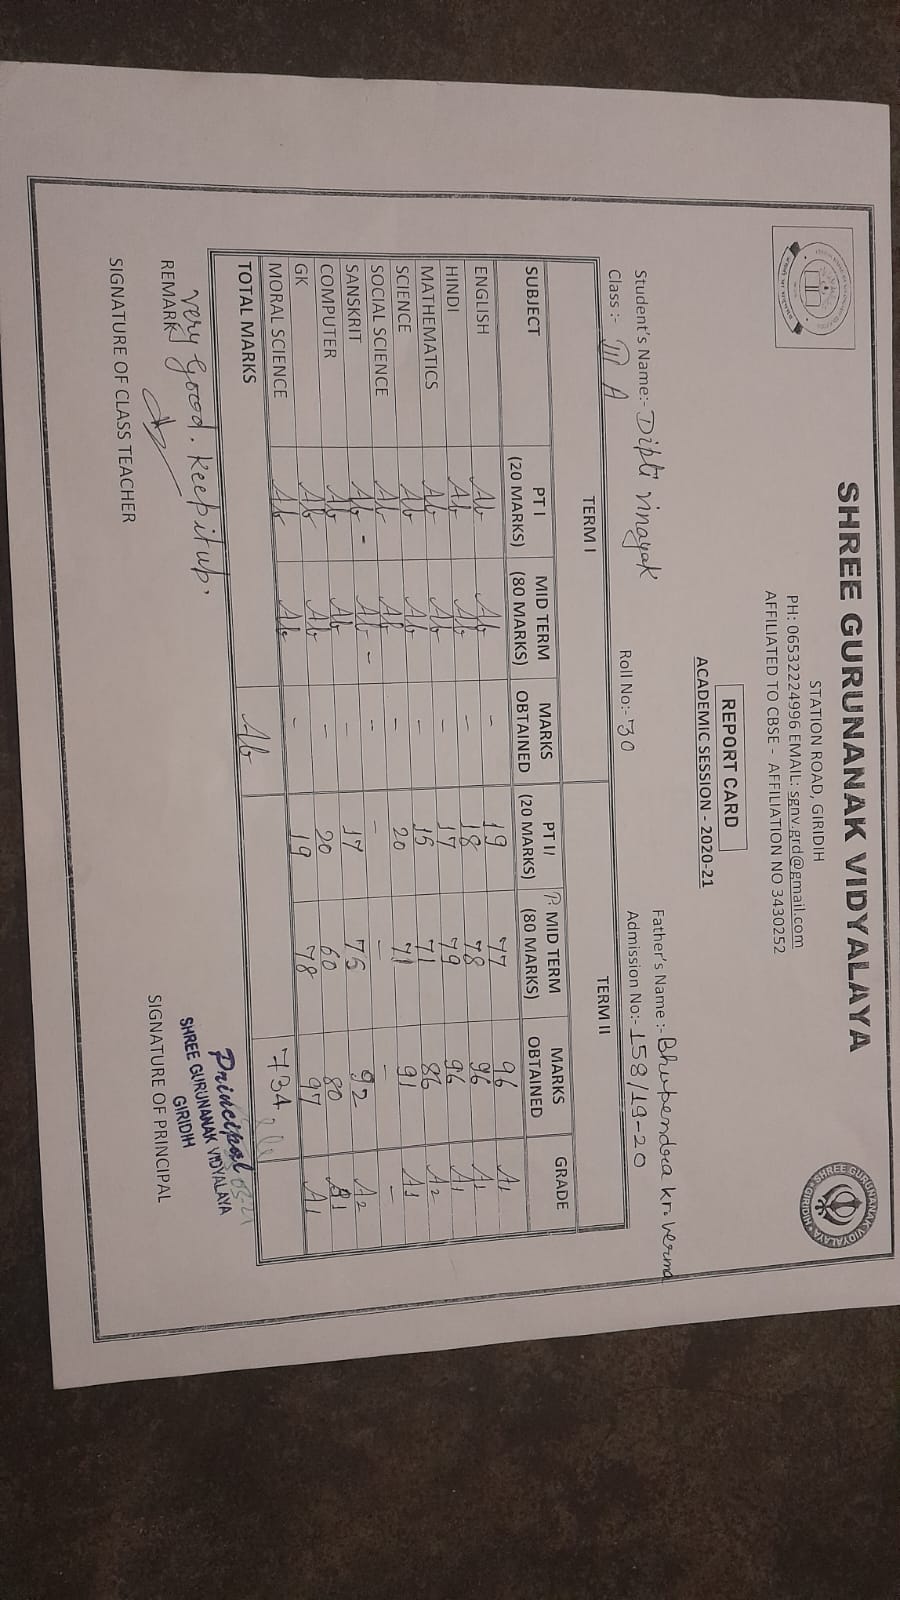 SHREE GURUNANAK VIDYALAYA
STATION ROAD, GIRIDIH
PH: 06532224996 EMAIL: sgnv.grd@gmail.com
AFFILIATED TO CBSE - AFFILIATION NO 3430252
SHREE GURUNANAK VIDYALAYA GIRIDIH
REPORT CARD
ACADEMIC SESSION - 2020-21
Student's Name:- Dipti Vinayak Father's Name :- Bhupendra kr. verma
Class :- III A Roll No:- 30 Admission No:- 158/19-20
TERM I TERM II
SUBJECT PT I (20 MARKS) MID TERM (80 MARKS) MARKS OBTAINED PT II (20 MARKS) P. MID TERM (80 MARKS) MARKS OBTAINED GRADE
ENGLISH Ab Ab - 19 77 96 A1
HINDI Ab Ab - 18 78 96 A1
MATHEMATICS Ab Ab - 17 79 96 A1
SCIENCE Ab Ab - 15 71 86 A2
SOCIAL SCIENCE Ab Ab - 20 71 91 A1
SANSKRIT Ab - Ab - - - - - -
COMPUTER Ab Ab - 17 75 92 A2
GK Ab Ab - 20 60 80 B1
MORAL SCIENCE Ab Ab - 19 78 97 A1
TOTAL MARKS Ab 734
REMARK Very Good. Keep it up.
Principal
SHREE GURUNANAK VIDYALAYA
GIRIDIH
SIGNATURE OF CLASS TEACHER SIGNATURE OF PRINCIPAL